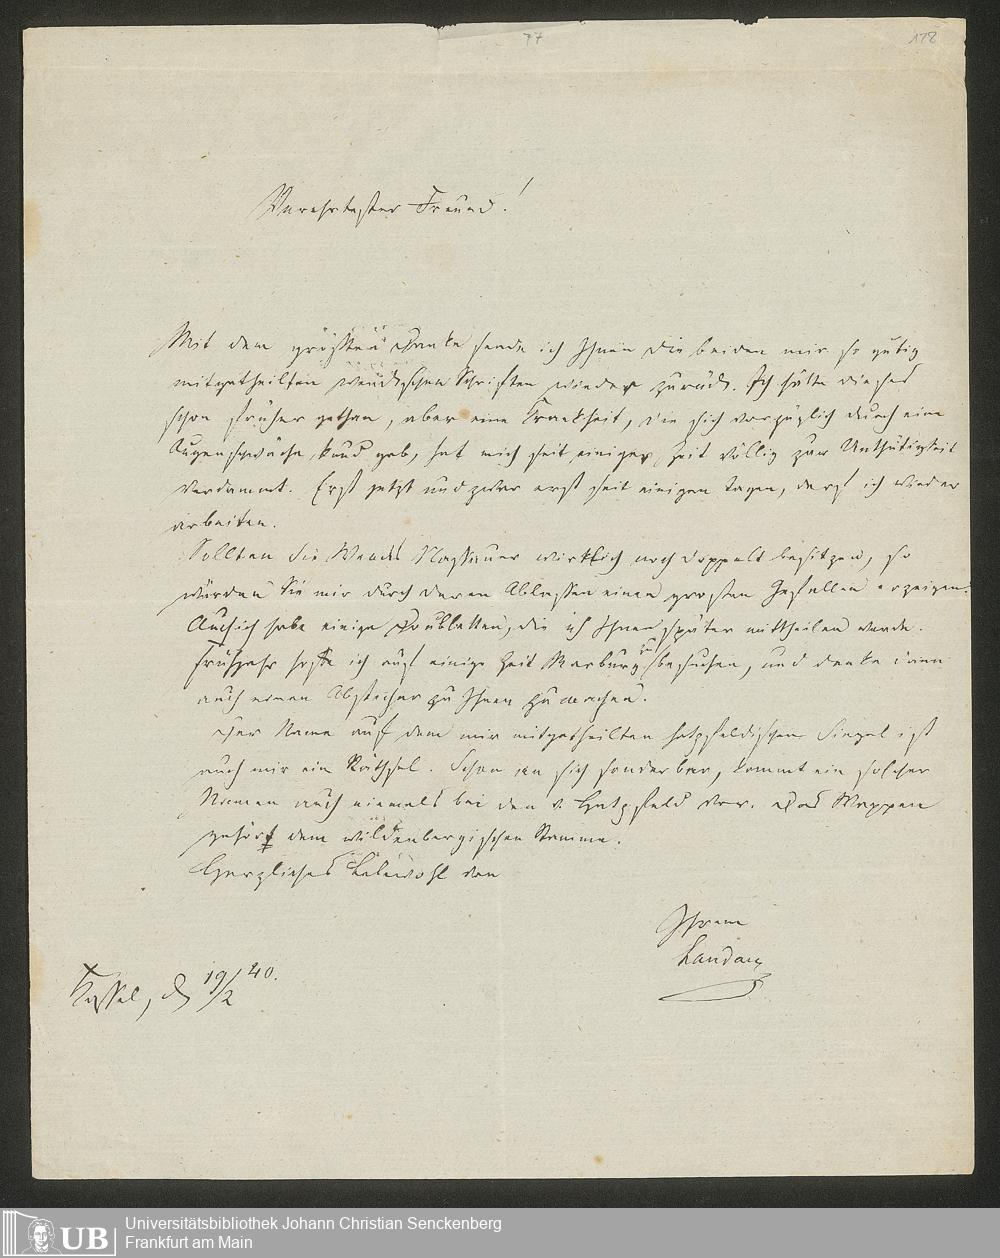 77
178
Verehrtester Freund!
Mit dem größten Danke sende ich Ihnen die beiden mir so gütig
mitgetheilten Schriften wieder zurück. Ich hätte dieses
schon früher gethan, aber eine Krankheit, die sich vorzüglich durch eine
Augenschwäche kund gab, hat mich seit einiger Zeit völlig zur Unthätigkeit
verdammt. Erst jetzt und zwar erst seit einigen Tagen, darf ich wieder
arbeiten.
Sollten Sie wirklich noch doppelt besitzen, so
würden Sie mir durch deren Ablassen einen großen Gefallen erzeigen.
Auch ich habe einige Doubletten, die ich Ihnen später mittheilen werde.
Frühjahr hoffe ich auf einige Zeit Marburg zu besuchen, und denke dann
auch einen Abstecher zu Ihnen zu machen.
Der Name auf dem mir mitgetheilten hatzfeldischen Siegel ist
auch mir ein Räthsel. Schon an sich sonderbar, kommt ein solcher
Namen auch niemals bei den v. Hatzfeld vor. Das Wappen
gehört dem wildenbergischen Stamme.
Herzliches Lebewohl von
Ihrem
Landau
Kassel, d 19/2 40.
Universitätsbibliothek Johann Christian Senckenberg
Frankfurt am Main
UB